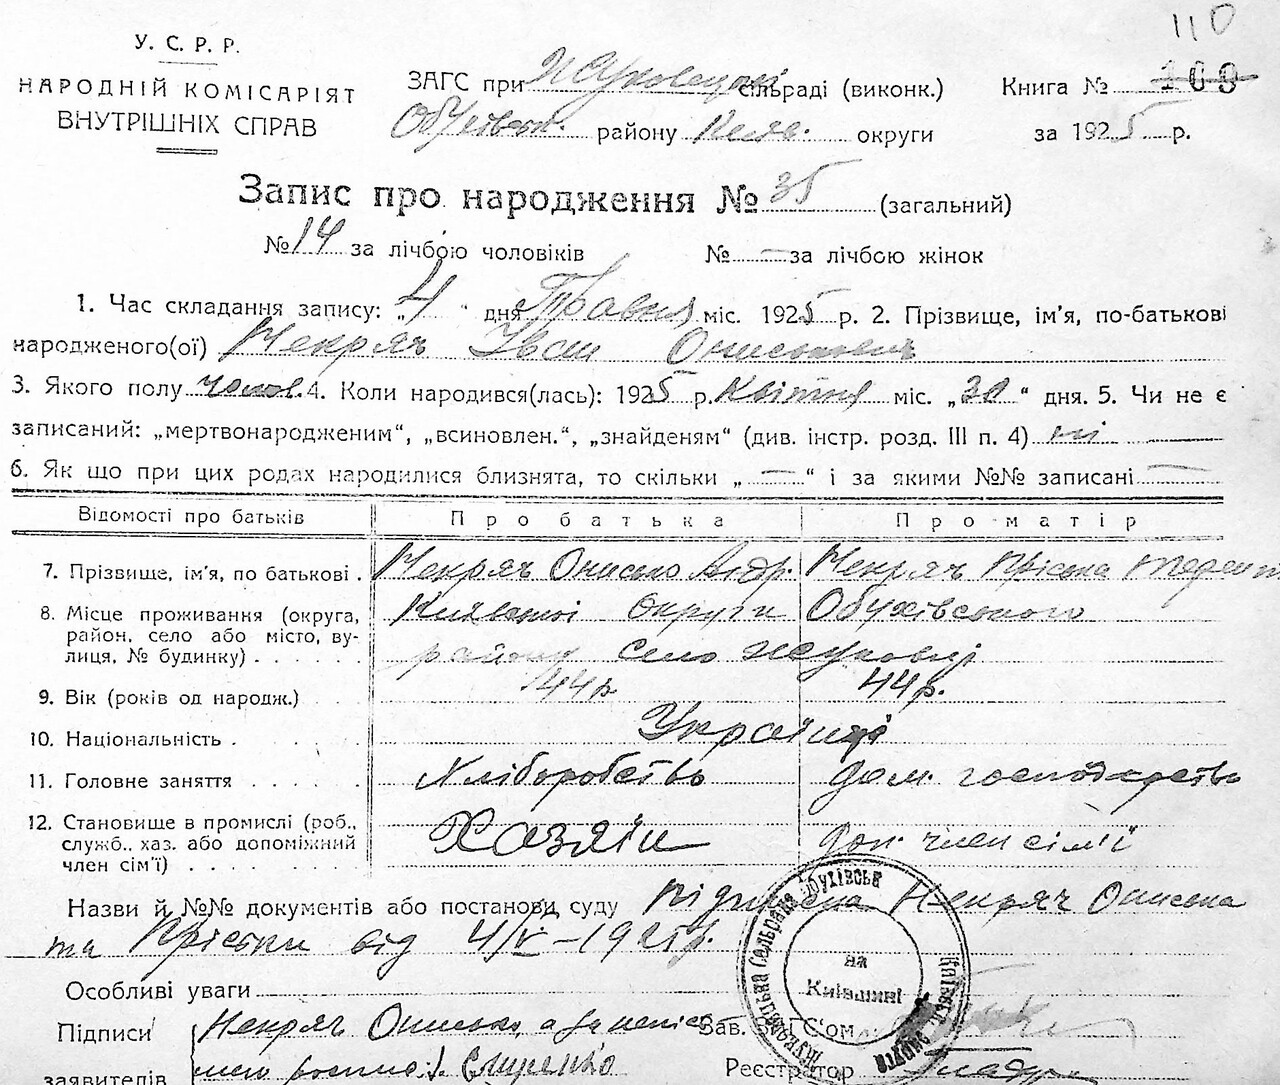 110
У. С. Р. Р.
НАРОДНІЙ КОМІСАРІЯТ
ВНУТРІШНІХ СПРАВ
ЗАГС при сільраді (виконк.)
району Київ. округи
Книга № 109
за 1925 р.
Запис про народження № 35 (загальний)
№ 14 за лічбою чоловіків № — за лічбою жінок
1. Час складання запису: „4“ дня Травня міс. 1925 р. 2. Прізвище, ім'я, по-батькові
народженого(ої) Некряч Іван Ониськович
3. Якого полу чолов. 4. Коли народився(лась): 1925 р. Квітня міс. „30“ дня. 5. Чи не є
записаний: „мертвонародженим“, „всиновлен.“, „знайденям“ (див. інстр. розд. III п. 4) ні
6. Як що при цих родах народилися близнята, то скільки „—“ і за якими №№ записані —
Відомості про батьків Про батька Про матір
7. Прізвище, ім'я, по батькові . Некряч Онисько Андр. Некряч Пріська Терент
8. Місце проживання (округа, Київської округи Обухівського
район, село або місто, ву-
лиця, № будинку) . . . . . . району село Жуковці
9. Вік (років од народж.) . . . 44 р. 44 р.
10. Національність . . . . . . Українці
11. Головне заняття . . . . . . Хліборобство дом. господарство
12. Становище в промислі (роб.,
служб., хаз. або допоміжний Хазяїн доп. член сім'ї
член сім'ї) . . . . . . . . .
Назви й №№ документів або постанови суду Некряч Ониська
та Пріськи від 4/V—192 р.
Особливі уваги
Підписи Некряч Онисько, а за
заявителів
Зав. ЗАГС'ом
Реєстратор
на
Київщині